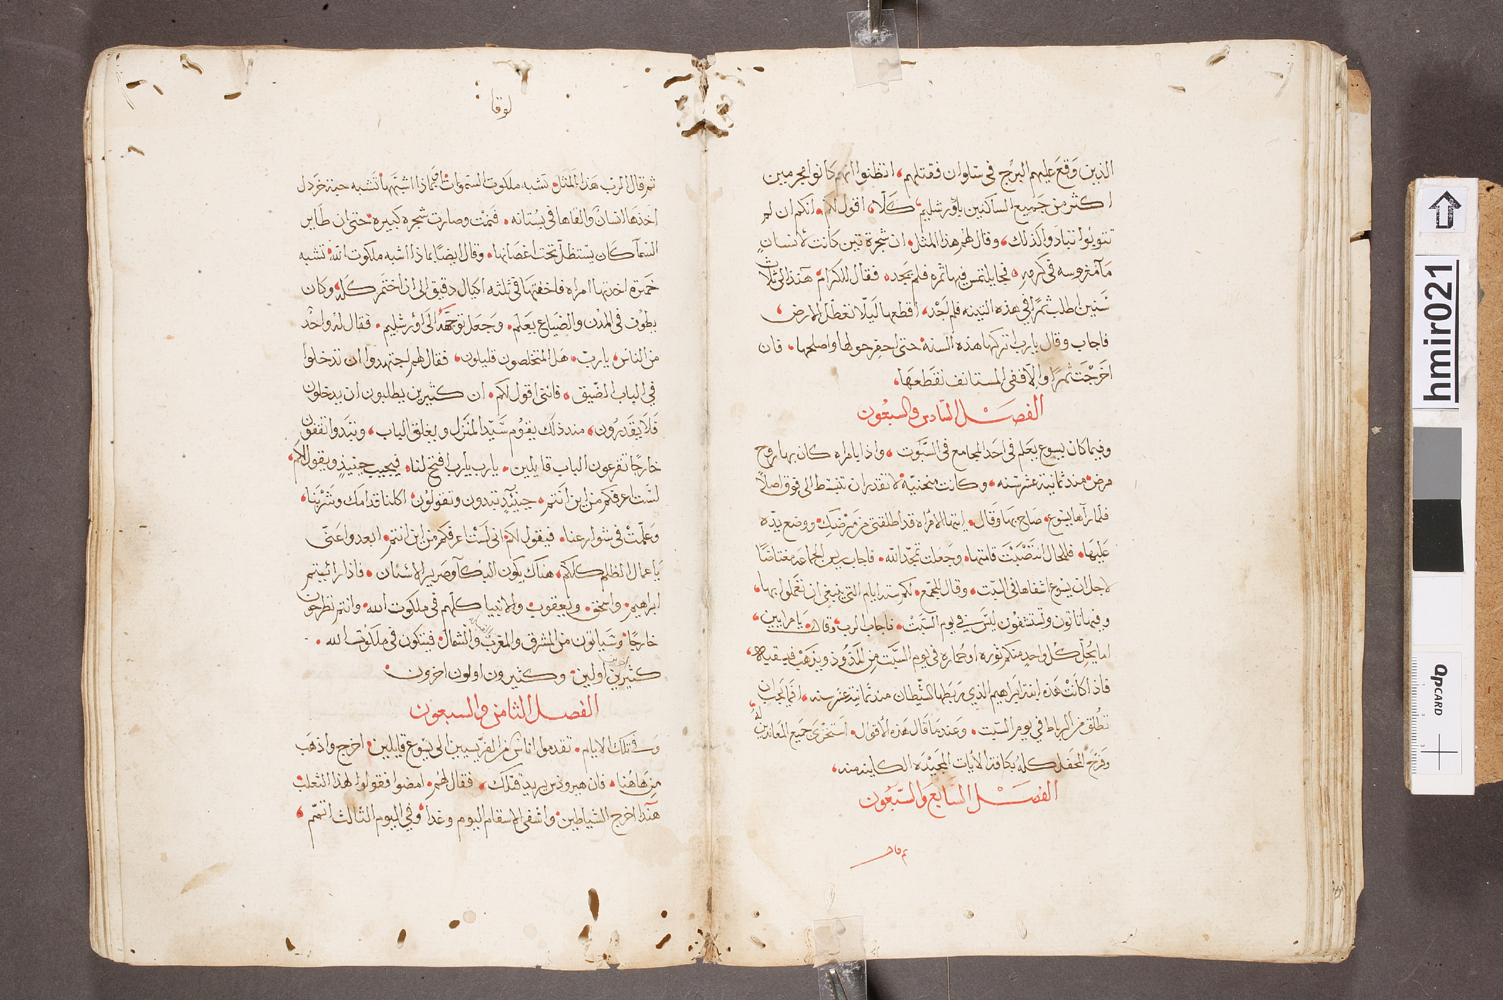 الذين وقع عليهم البرج في سلوان فقتلهم، اتظنوا انهم كانوا مجرمين
اكثر من جميع الساكنين باورشليم، كلا، اقول لكم، انكم ان لم
تتوبوا تبادوا كذلك، وقال لهم هذا المثل، ان شجرة تين كانت لانسان
مغروسه في كرمه، فجا يلتمس فيها ثمره فلم يجد، فقال للكرام، هذا لي ثلاث
سنين اطلب ثمرا في هذه التينه فلم اجد، اقطعها ليلا تعطل الارض،
فاجاب وقال يارب اتركها هذه السنه حتى احفر حولها واصلحها، فان
اخرجت ثمرا والا ففي المستانف تقطعها،
الفصل السادس والسبعون
وفيما كان يسوع يعلم في احد المجامع في السبوت، واذا بامراه كان بها روح
مرض منذ ثمانية عشر سنه، وكانت منحنية لا تقدر ان تنبسط الى فوق اصلا
فلما راها يسوع، صاح بها وقال، ايتها الامراه قد اطلقتي من مرضك، ووضع يده
عليها، فللحال انتصبت قامتها، وجعلت تمجد الله، فاجاب ريس الجماعه مغتاضا
لاجل ان يسوع اشفاها في السبت، وقال للجمع، لكم ستة ايام التي ينبغي ان تعملوا بها،
وفيها تاتون وتستشفون ليس في يوم السبت، فاجاب الرب وقال، يامرايين،
اما يحل كل واحد منكم ثوره او حماره في يوم السبت من المذود ويذهب فيسقيه،
فاذا كانت هذه ابنة ابراهيم الذي ربطها الشيطان منذ ثمانية عشر سنه، افما يجب ان
تطلق من الرباط في يوم السبت، وعندما قال هذه الاقوال، استخزى جميع المعاندين له
وفرح المحفل كله بكافة الايات المجيده الكاينه منه،
الفصل السابع والسبعون
ثم قال
لوقا
ثم قال الرب هذا المثل، تشبه ملكوت السموات، بماذا اشبهها تشبه حبة خردل
اخذها انسان والقاها في بستانه، فنمت وصارت شجره كبيره، حتى ان طاير
السما كان يستظل تحت اغصانها، وقال ايضا بماذا اشبه ملكوت الله، تشبه
خميرة اخذتها امراه فاخفتها في ثلثه اكيال دقيق الى ان اختمر كله، وكان
يطوف في المدن والضياع يعلم، وجعل توجهه الى اورشليم، فقال له واحد
من الناس، يارب، هل المتخلصون قليلون، فقال لهم اجتهدوا ان تدخلوا
في الباب الضيق، فانني اقول لكم، ان كثيرين يطلبون ان يدخلون
فلا يقدرون، منذ ذلك يقوم سيد المنزل ويغلق الباب، وتبدوا تقفون
خارجا تقرعون الباب قايلين، يارب يارب افتح لنا، فيجيب حينيذ ويقول لكم
لست اعرفكم من اين انتم، حينيذ تبدون وتقولون، اكلنا قدامك وشربنا،
وعلمت في شوارعنا، فيقول لكم اني لست اعرفكم من اين انتم، ابعدوا عني
ياعمال الظلم كلكم، هناك يكون البكا وصرير الاسنان، فاذا رايتم
ابراهيم، واسحق، ويعقوب، والانبيا كلهم في ملكوت الله، وانتم تطرحون
خارجا، وسياتون من المشرق والمغرب والشمال، فيتكون في ملكوت الله،
كثيرين اولين، وكثيرون اولون اخرون،
الفصل الثامن والسبعون
وفي تلك الايام، تقدموا اناس من الفريسيين الى يسوع قايلين، اخرج واذهب
من هاهنا، فان هيرودس يريد قتلك، فقال لهم، امضوا فقولوا لهذا الثعلب
هنذا اخرج الشياطين، واشفي الاسقام اليوم وغدا، وفي اليوم الثالث اتمم،
hmir021
dpp
CARD